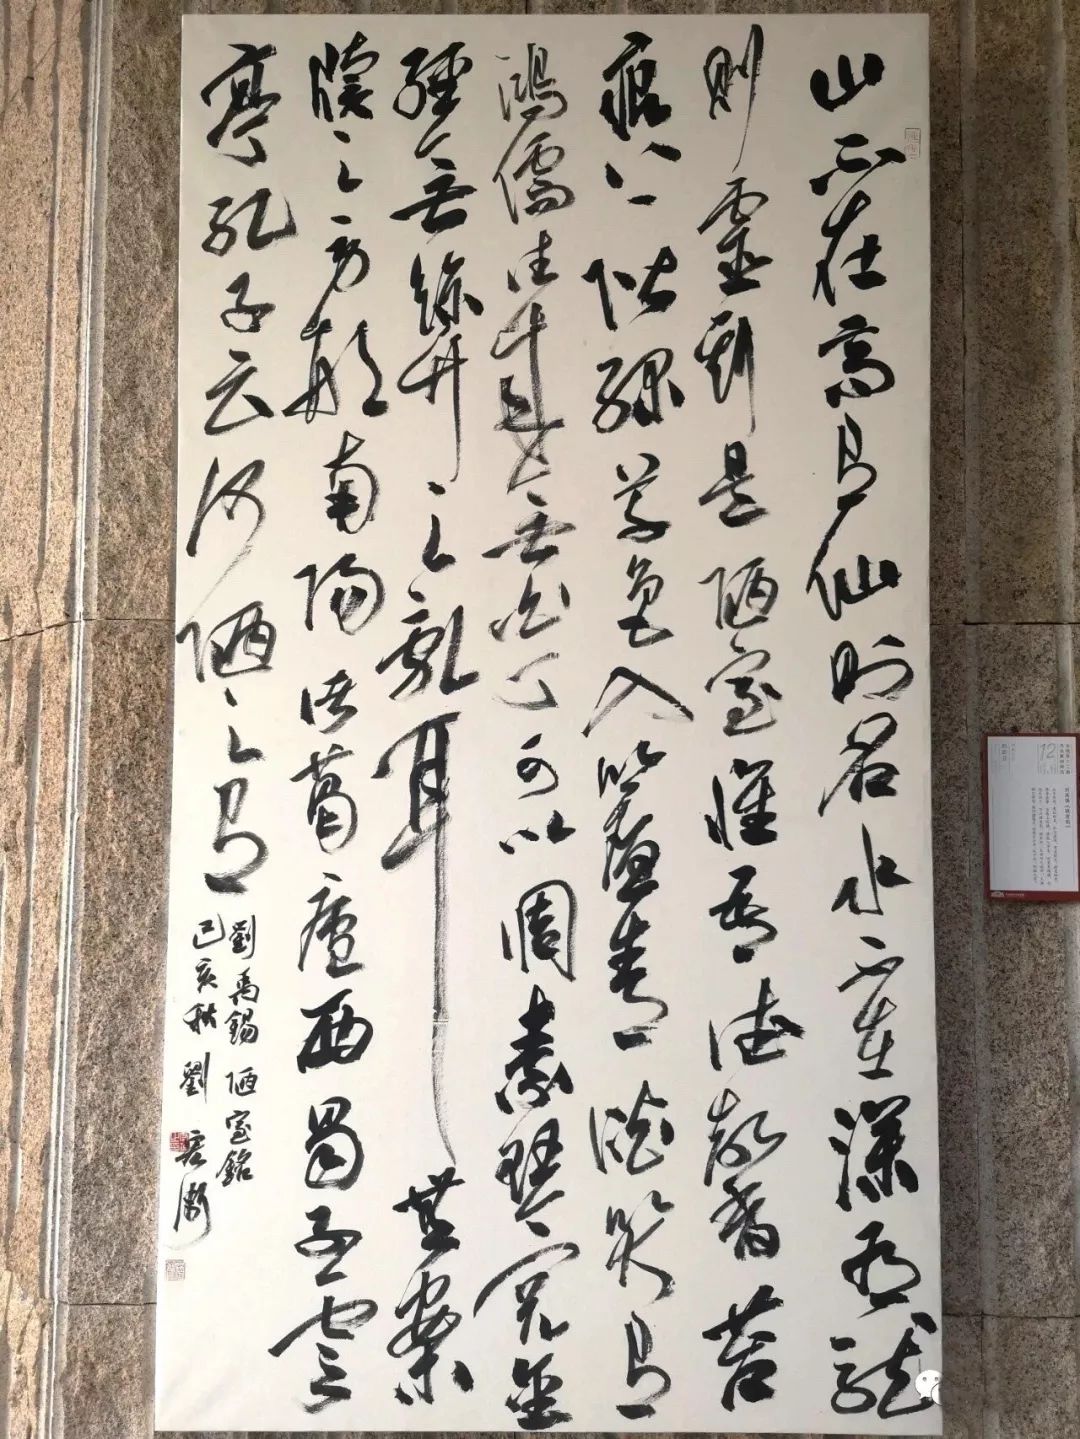 山不在高有仙則名水不在深有龍
則靈斯是陋室惟吾德馨苔
痕上階綠草色入簾青談笑有
鴻儒往來無白丁可以調素琴閱金
經無絲竹之亂耳無案
牘之勞形南陽諸葛廬西蜀子雲
亭孔子云何陋之有
劉禹錫 陋室銘
己亥秋 劉彥湖
12